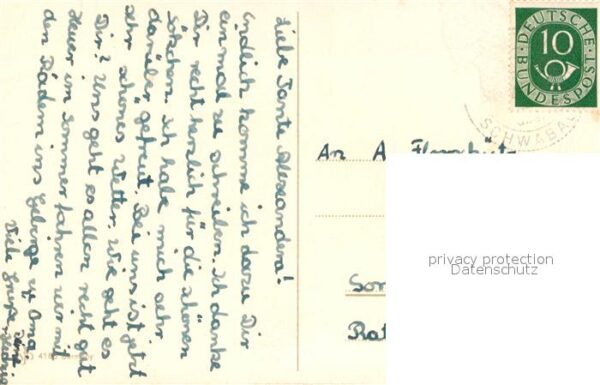 Liebe Tante Alexandra!
Endlich komme ich dazu Dir
einmal zu schreiben. Ich danke
Dir recht herzlich für die schönen
Söckchen. Ich habe mich sehr
darüber gefreut. Bei uns ist jetzt
sehr schönes Wetter. Wie geht es
Dir? Uns geht es allen recht gut
Heuer im Sommer fahren wir mit
den Rädern ins Gebirge zu Oma.
Viele Grüsse
DEUTSCHE
BUNDESPOST
10
SCHWABA
An A.
Son
Rat
privacy protection
Datenschutz